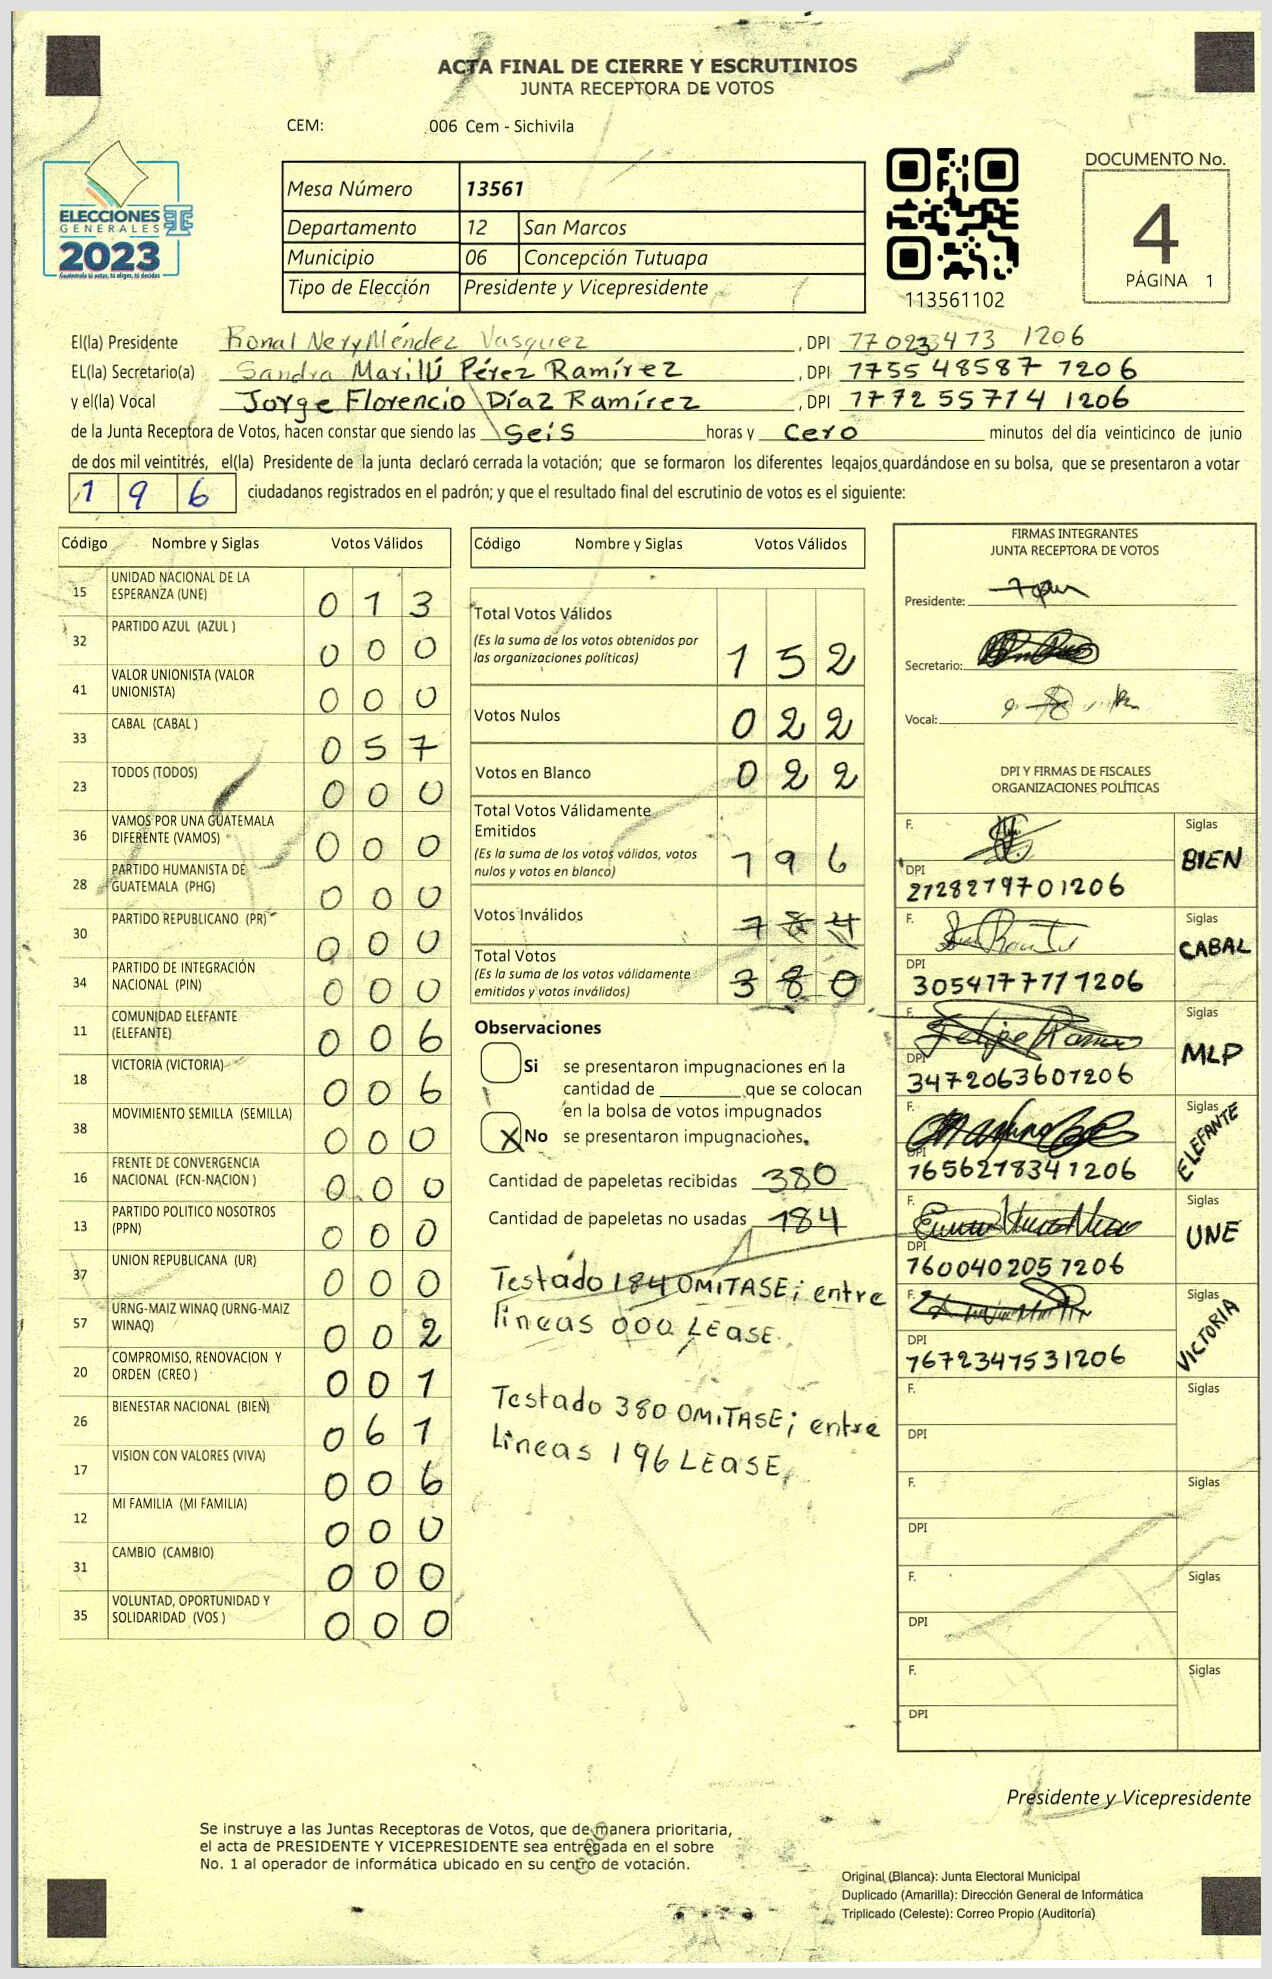 ACTA FINAL DE CIERRE Y ESCRUTINIOS
JUNTA RECEPTORA DE VOTOS
CEM: 006 Cem - Sichivila
ELECCIONES
GENERALES
2023
Guatemala tú votas, tú eliges, tú decides
Mesa Número 13561
Departamento 12 San Marcos
Municipio 06 Concepción Tutuapa
Tipo de Elección Presidente y Vicepresidente
113561102
DOCUMENTO No.
4
PÁGINA 1
El(la) Presidente Ronal Nery Méndez Vasquez , DPI 1206
EL(la) Secretario(a) Sandra Marilú Pérez Ramírez , DPI 7755 48587 1206
y el(la) Vocal Jorge Florencio Díaz Ramírez , DPI 1772 55714 1206
de la Junta Receptora de Votos, hacen constar que siendo las seis horas y cero minutos del día veinticinco de junio
de dos mil veintitrés, el(la) Presidente de la junta declaró cerrada la votación; que se formaron los diferentes legajos guardándose en su bolsa, que se presentaron a votar
196 ciudadanos registrados en el padrón; y que el resultado final del escrutinio de votos es el siguiente:
Código Nombre y Siglas Votos Válidos
15 UNIDAD NACIONAL DE LA ESPERANZA (UNE) 013
32 PARTIDO AZUL (AZUL ) 000
41 VALOR UNIONISTA (VALOR UNIONISTA) 000
33 CABAL (CABAL ) 057
23 TODOS (TODOS) 000
36 VAMOS POR UNA GUATEMALA DIFERENTE (VAMOS) 000
28 PARTIDO HUMANISTA DE GUATEMALA (PHG) 000
30 PARTIDO REPUBLICANO (PR) 000
34 PARTIDO DE INTEGRACIÓN NACIONAL (PIN) 000
11 COMUNIDAD ELEFANTE (ELEFANTE) 006
18 VICTORIA (VICTORIA) 006
38 MOVIMIENTO SEMILLA (SEMILLA) 000
16 FRENTE DE CONVERGENCIA NACIONAL (FCN-NACION ) 000
13 PARTIDO POLITICO NOSOTROS (PPN) 000
37 UNION REPUBLICANA (UR) 000
57 URNG-MAIZ WINAQ (URNG-MAIZ WINAQ) 002
20 COMPROMISO, RENOVACION Y ORDEN (CREO ) 001
26 BIENESTAR NACIONAL (BIEN) 061
17 VISION CON VALORES (VIVA) 006
12 MI FAMILIA (MI FAMILIA) 000
31 CAMBIO (CAMBIO) 000
35 VOLUNTAD, OPORTUNIDAD Y SOLIDARIDAD (VOS ) 000
Código Nombre y Siglas Votos Válidos
Total Votos Válidos
(Es la suma de los votos obtenidos por
las organizaciones políticas) 152
Votos Nulos 022
Votos en Blanco 022
Total Votos Válidamente
Emitidos
(Es la suma de los votos válidos, votos
nulos y votos en blanco) 196
Votos Inválidos 184
Total Votos
(Es la suma de los votos válidamente
emitidos y votos inválidos) 380
Observaciones
Si se presentaron impugnaciones en la
cantidad de ________ que se colocan
en la bolsa de votos impugnados
X No se presentaron impugnaciones.
Cantidad de papeletas recibidas 380
Cantidad de papeletas no usadas 184
Testado 184 OMITASE; entre
líneas 000 LEASE.
Testado 380 OMITASE; entre
Líneas 196 LEASE.
FIRMAS INTEGRANTES
JUNTA RECEPTORA DE VOTOS
Presidente:
Secretario:
Vocal:
DPI Y FIRMAS DE FISCALES
ORGANIZACIONES POLÍTICAS
F. Siglas
BIEN
DPI
2128219701206
F. Siglas
CABAL
DPI
3054177711206
F. Siglas
Felipe Ramos
MLP
DPI
3472063601206
F. Siglas
ELEFANTE
DPI
1656218341206
F. Siglas
UNE
DPI
1600402051206
F. Siglas
VICTORIA
DPI
1672347531206
F. Siglas
DPI
F. Siglas
DPI
F. Siglas
DPI
F. Siglas
DPI
Presidente y Vicepresidente
Se instruye a las Juntas Receptoras de Votos, que de manera prioritaria,
el acta de PRESIDENTE Y VICEPRESIDENTE sea entregada en el sobre
No. 1 al operador de informática ubicado en su centro de votación.
Original (Blanca): Junta Electoral Municipal
Duplicado (Amarilla): Dirección General de Informática
Triplicado (Celeste): Correo Propio (Auditoría)